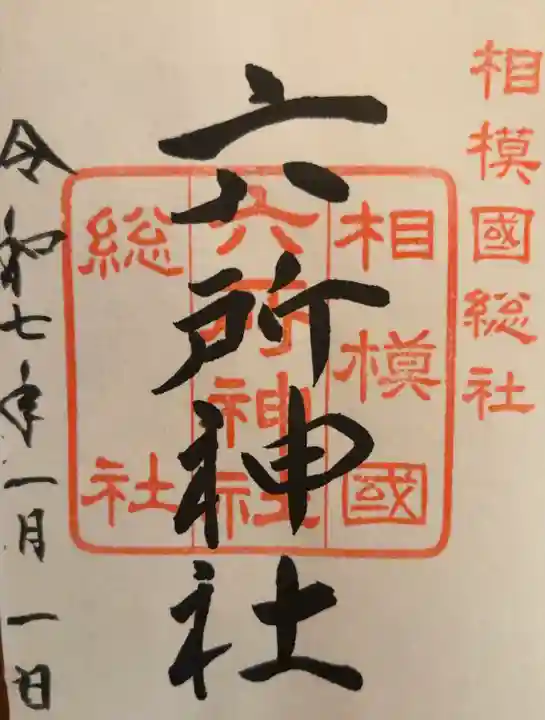 相模國総社
相模國
六所神社
総社
六所神社
令和七年一月一日